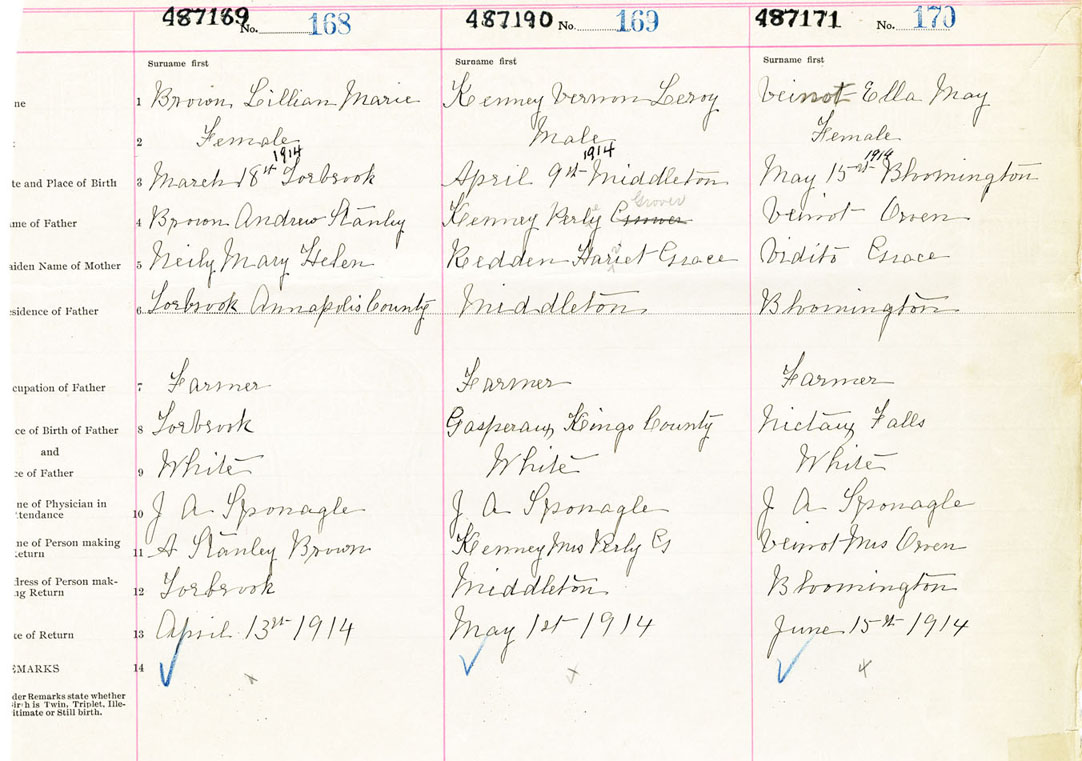 487169 No. 168 487190 No. 169 487171 No. 170
Surname first Surname first Surname first
me 1 Brown Lillian Marie Kenney Vernon Leroy Veinot Ella May
2 Female Male Female
1914 1914 1914
ate and Place of Birth 3 March 18st Torbrook April 9st Middleton May 15st Bloomington
Grover
ame of Father 4 Brown Andrew Stanley Kenney Perly Grover Veinot Orven
aiden Name of Mother 5 Neily Mary Helen Redden Hariet Grace Vidito Grace
esidence of Father 6 Torbrook Annapolis County Middleton Bloomington
cupation of Father 7 Farmer Farmer Farmer
ce of Birth of Father 8 Torbrook Gasperaux Kings County Nictaux Falls
and
ce of Father 9 White White White
ne of Physician in
ttendance 10 J A Sponagle J A Sponagle J A Sponagle
ne of Person making
Return 11 A Stanley Brown Kenney Mrs Perly G Veinot Mrs Orven
dress of Person mak-
ng Return 12 Torbrook Middleton Bloomington
te of Return 13 April 13st 1914 May 1st 1914 June 15st 1914
EMARKS 14
der Remarks state whether
Birth is Twin, Triplet, Ille-
itimate or Still birth.